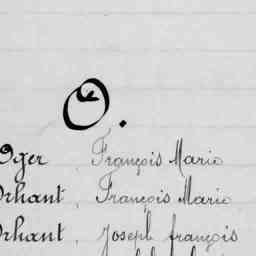 O.
Oger, François Marie
Orhant, François Marie
Orhant, Joseph françois